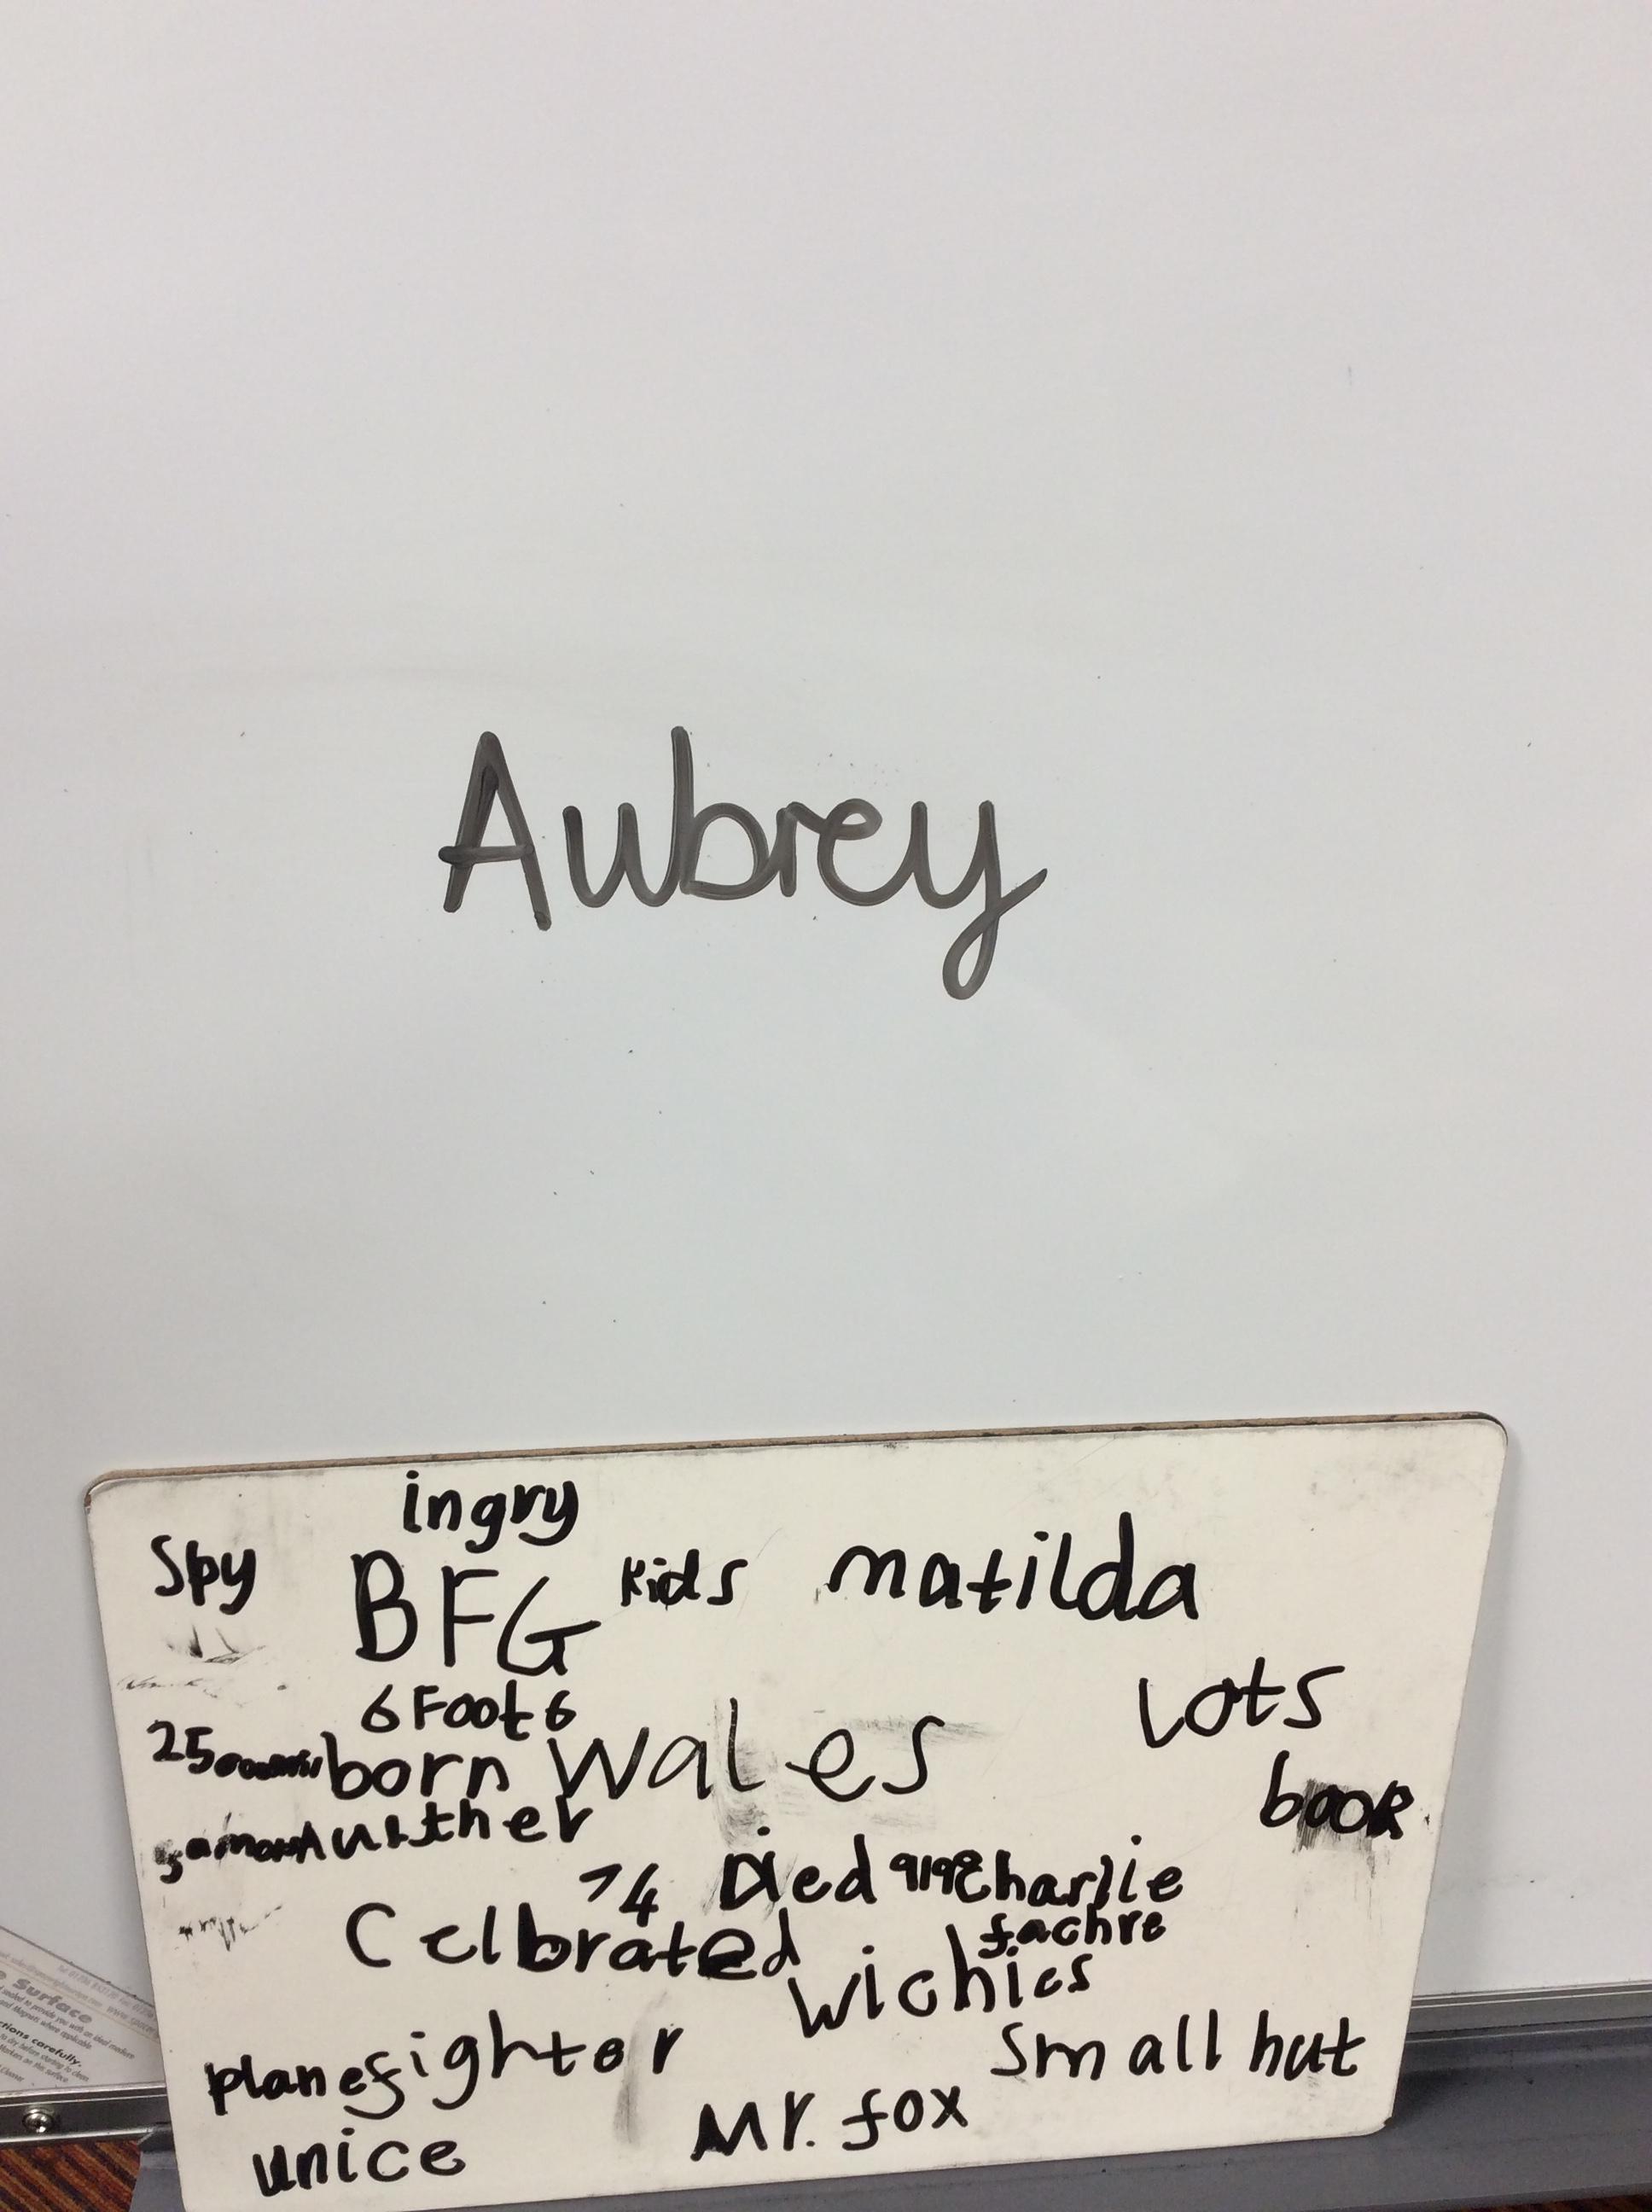 Aubrey
ingry
Spy
BFG kids matilda
6 Foot 6
Lots
born wales
book
Died
Charlie
74
fachre
Celbrated
wichies
planefighter
small hut
Mr. fox
unice
Surface